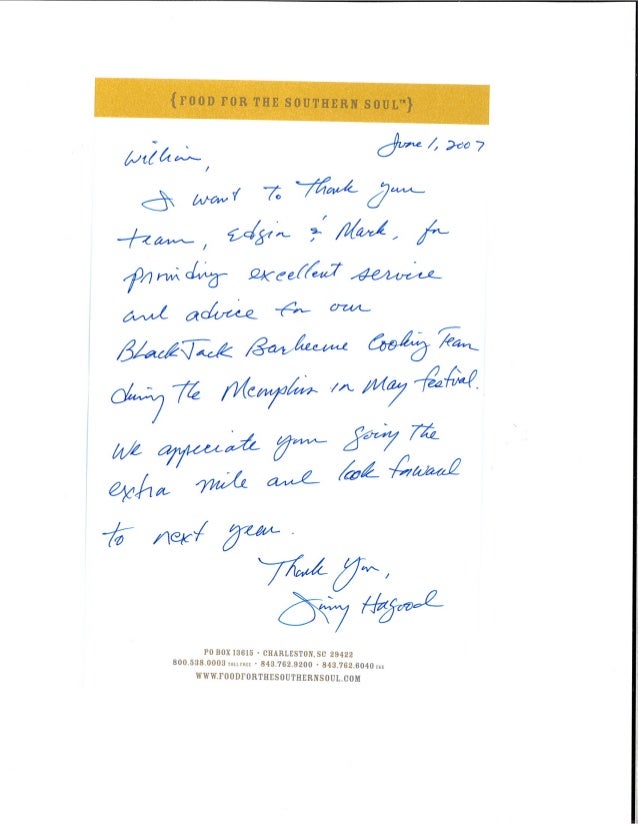 {FOOD FOR THE SOUTHERN SOUL™}
June 1, 2007
William,
I want to thank your
team, Edgin & Mark, for
providing excellent service
and advice for our
BlackJack Barbecue Cooking Team
during the Memphis in May festival.
We appreciate your going the
extra mile and look forward
to next year.
Thank You,
Jimmy Hagood
PO BOX 13615 · CHARLESTON, SC 29422
800.538.0003 TOLL FREE · 843.762.9200 · 843.762.6040 FAX
WWW.FOODFORTHESOUTHERNSOUL.COM